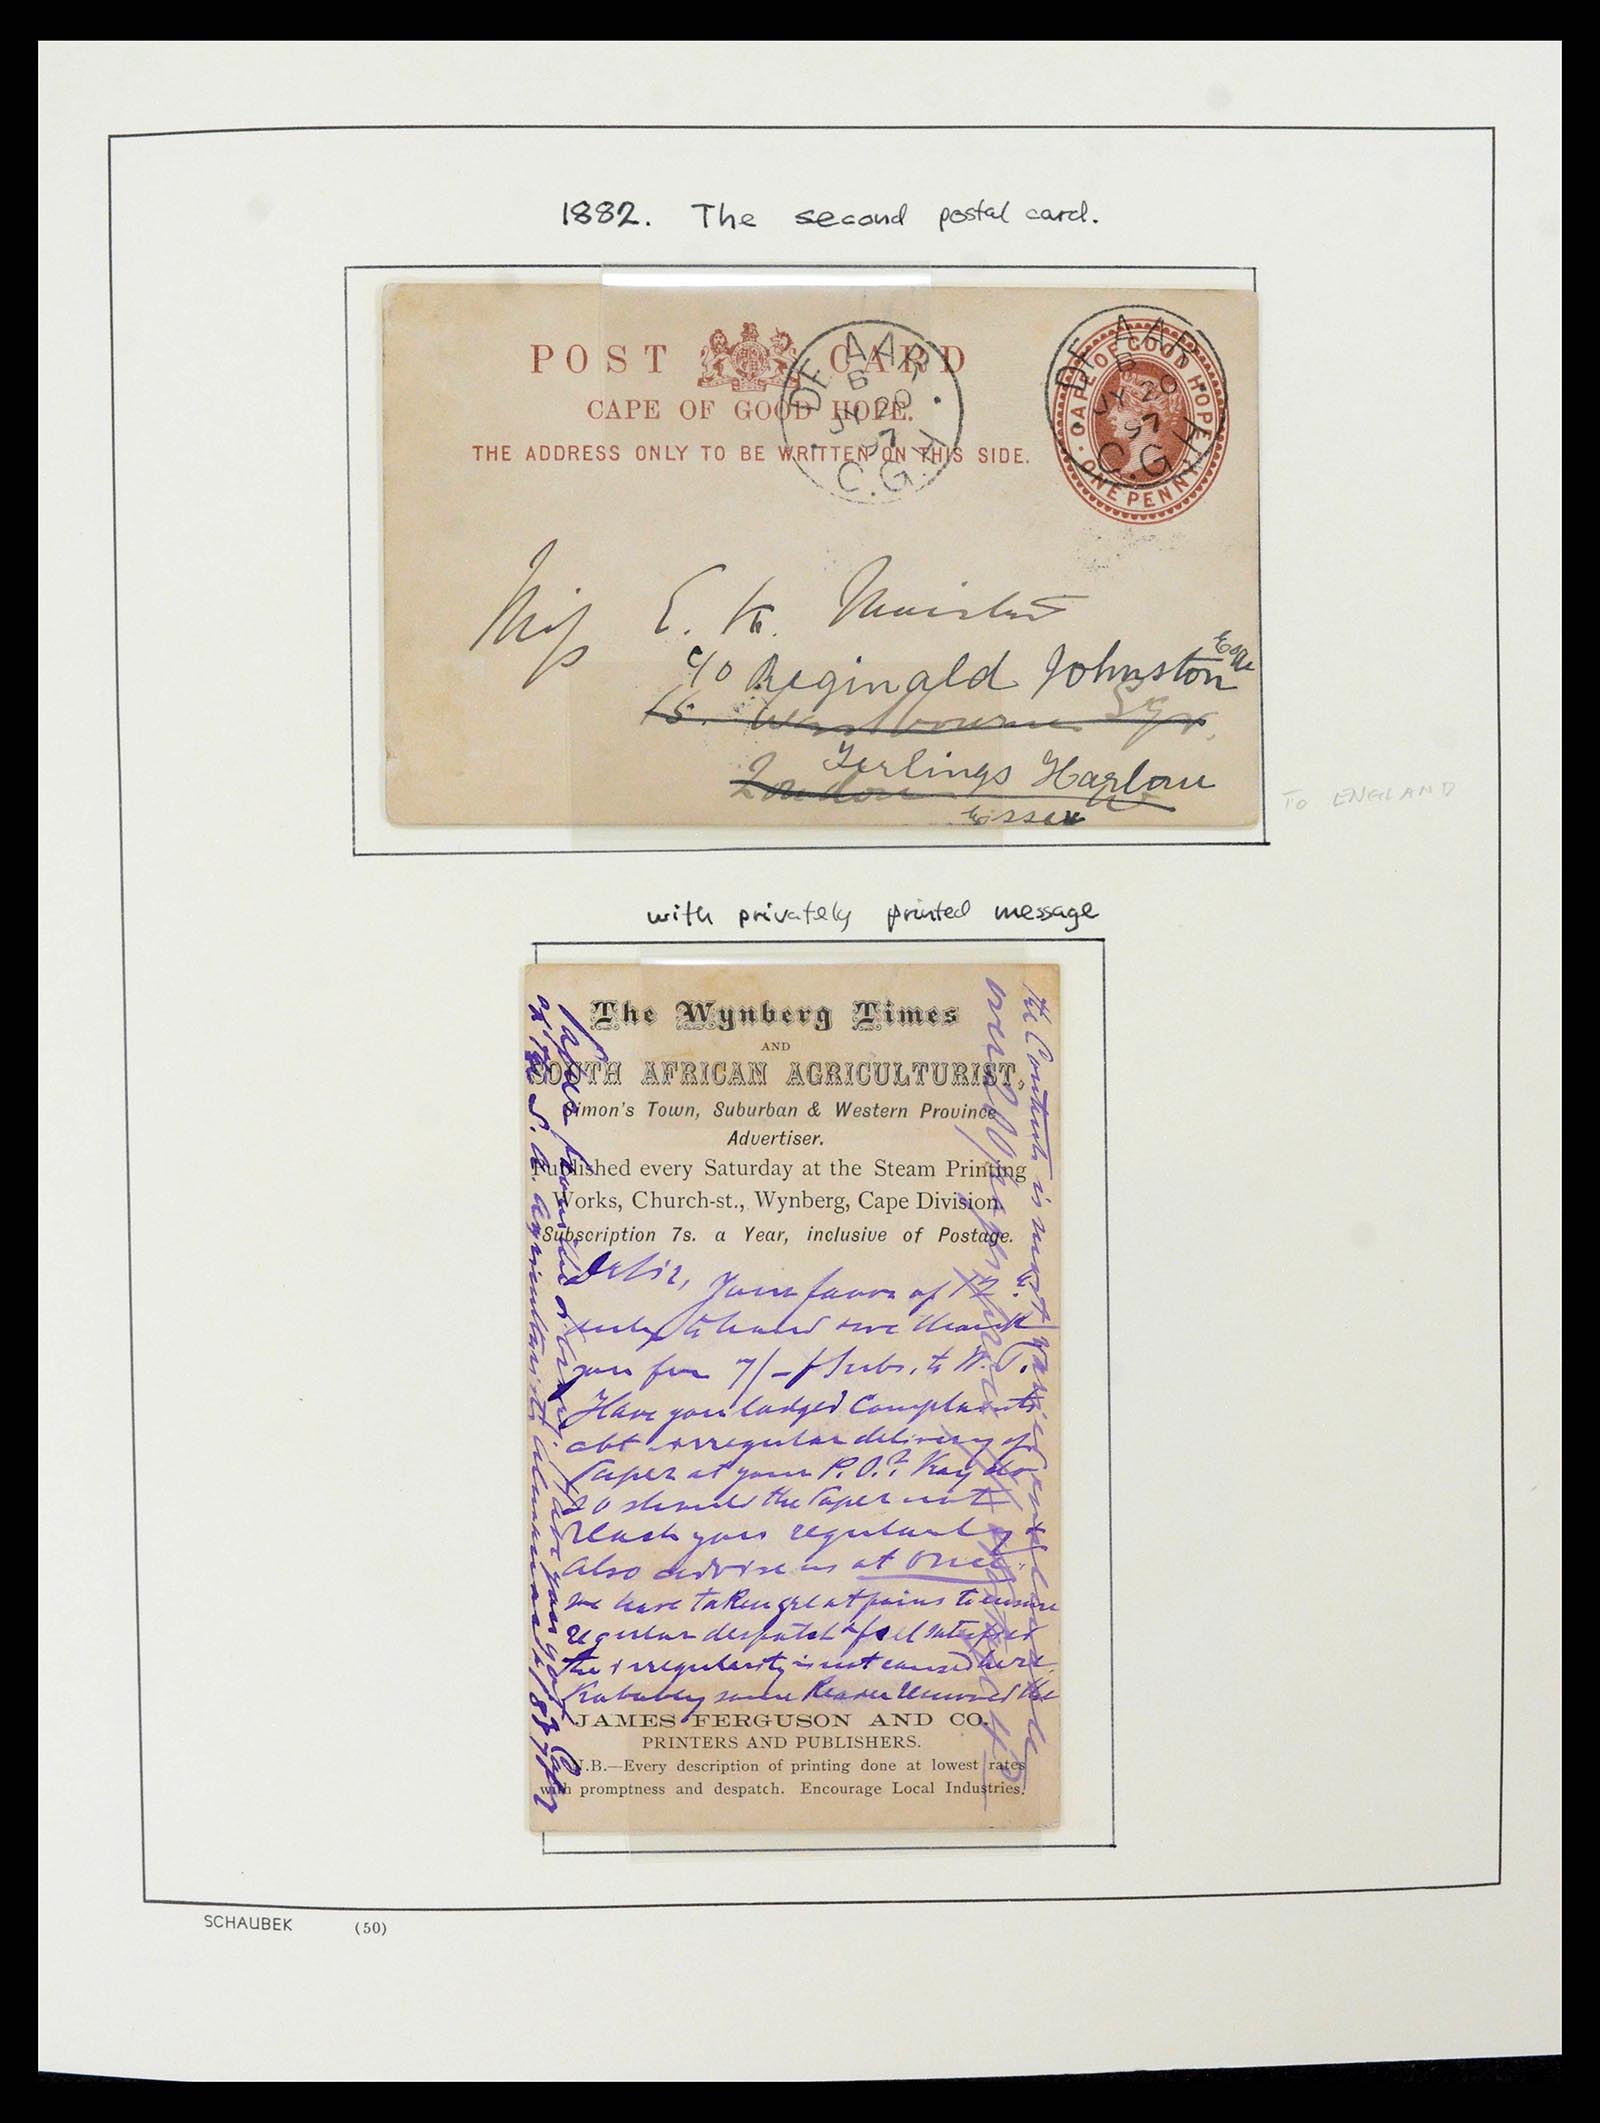 1882. The second postal card.
POST CARD
CAPE OF GOOD HOPE.
THE ADDRESS ONLY TO BE WRITTEN ON THIS SIDE.
DE AAR
B
JY 20
97
C.G.H
CAPE OF GOOD HOPE
ONE PENNY
DE AAR
B
JY 20
97
C.G.H
Miss E. K.
c/o Reginald Johnston Esqre
15. Westbourne Sqr.
London
Terlings Harlow
Essex
TO ENGLAND
with privately printed message
The Wynberg Times
AND
SOUTH AFRICAN AGRICULTURIST,
Simon's Town, Suburban & Western Province
Advertiser.
Published every Saturday at the Steam Printing
Works, Church-st., Wynberg, Cape Division.
Subscription 7s. a Year, inclusive of Postage.
Dr Sir,
Your favor of 12
to hand we thank
you for 7/- Subs. to W. T.
Have you lodged Complaints
abt irregular delivery of
Paper at your P.O.? do
so should the Paper not
reach you regularly &
also advise us at once.
we have taken great pains to ensure
regular despatch & feel satisfied
the irregularity is not caused here.
Probably some Reader removed the
JAMES FERGUSON AND CO.
PRINTERS AND PUBLISHERS.
N.B.—Every description of printing done at lowest rates
with promptness and despatch. Encourage Local Industries.
The Contents is most varied and
SCHAUBEK (50)